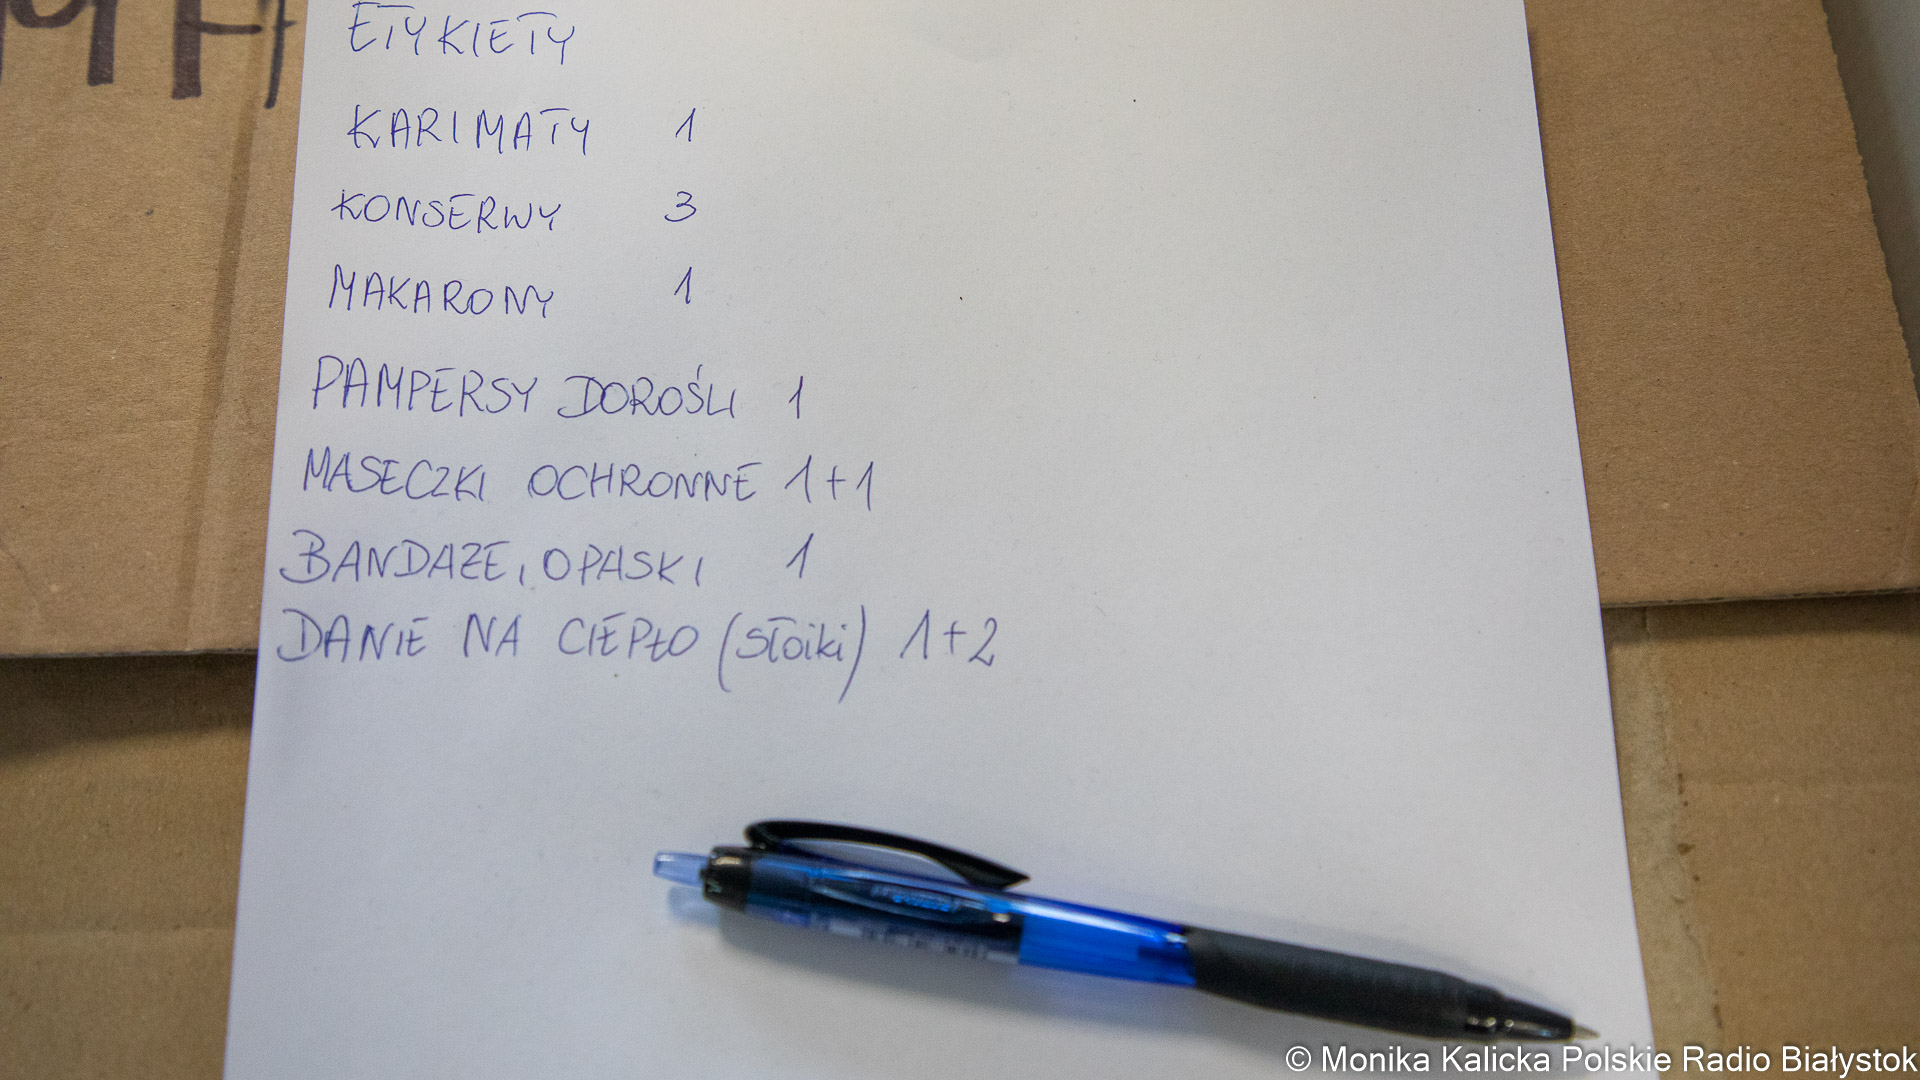 ETYKIETY
KARIMATY 1
KONSERWY 3
MAKARONY 1
PAMPERSY DOROŚLI 1
MASECZKI OCHRONNE 1+1
BANDAZE, OPASKI 1
DANIE NA CIEPŁO (słoiki) 1+2
© Monika Kalicka Polskie Radio Białystok